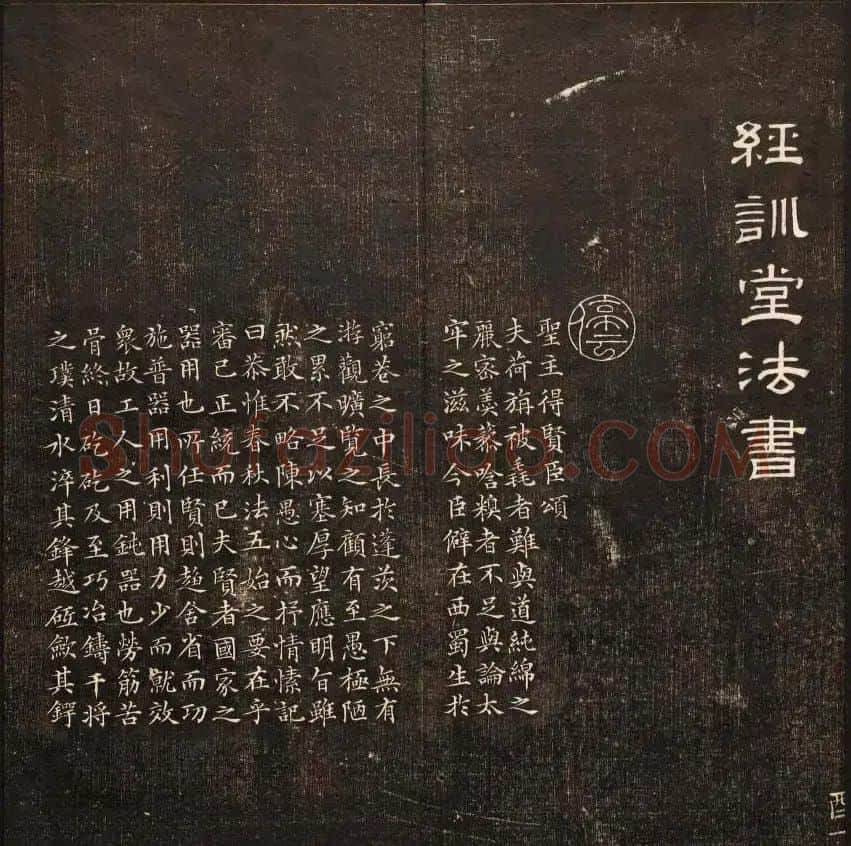 經訓堂法書
停云
聖主得賢臣頌
夫荷旃被毳者難與道純綿之
麗密羮藜唅糗者不足與論太
牢之滋味今臣僻在西蜀生於
窮巷之中長於蓬茨之下無有
游觀曠覽之知顧有至愚極陋
之累不足以塞厚望應明旨雖
然敢不略陳愚心而抒情愫記
曰恭惟春秋法五始之要在乎
審己正統而已夫賢者國家之
器用也所任賢則趍舍省而功
施普器用利則用力少而就效
衆故工人之用鈍器也勞筋苦
骨終日矻矻及至巧冶鑄干將
之璞清水淬其鋒越砥歛其鍔
Shufaziliao.COM